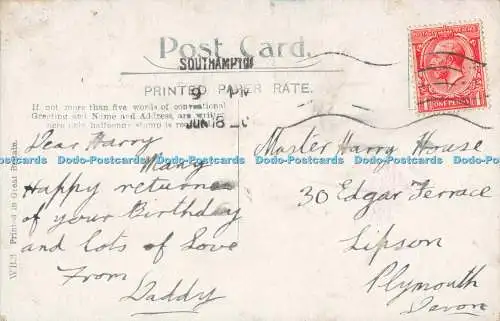 Post Card.
SOUTHAMPTON
PRINTED PAPER RATE.
9
JUN 18
If not more than five words of conventional
Greeting and Name and Address, are written
halfpenny stamp is
ONE PENNY
W.B.S. Printed in Great Britain
Dear Harry
Many
Happy returns
of your Birthday
and lots of Love
From
Daddy
Master Harry House
30 Edgar Terrace
Lipson
Plymouth
Devon
Dodo-Postcards Dodo-Postcards Dodo-Postcards Dodo-Postcards Dodo-Postcards